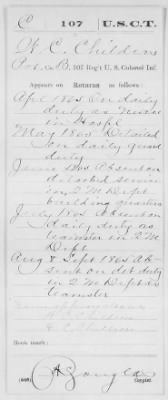 C 107 U.S.C.T.
H. C. Childers
Co. B, 107 Reg't U. S. Colored Inf.
Appears on Returns as follows:
Apr 1865 On daily
duty as nurse
in Hospl
May 1865 Detailed
on daily guard
duty
June 1865 Absent on
detached service
in Q M Dept
building quarters
July 1865 Absent on
daily duty as
teamster in Q M
Dept
Aug & Sept 1865 Ab-
sent on det duty
in Q M Dept as
teamster
(546)